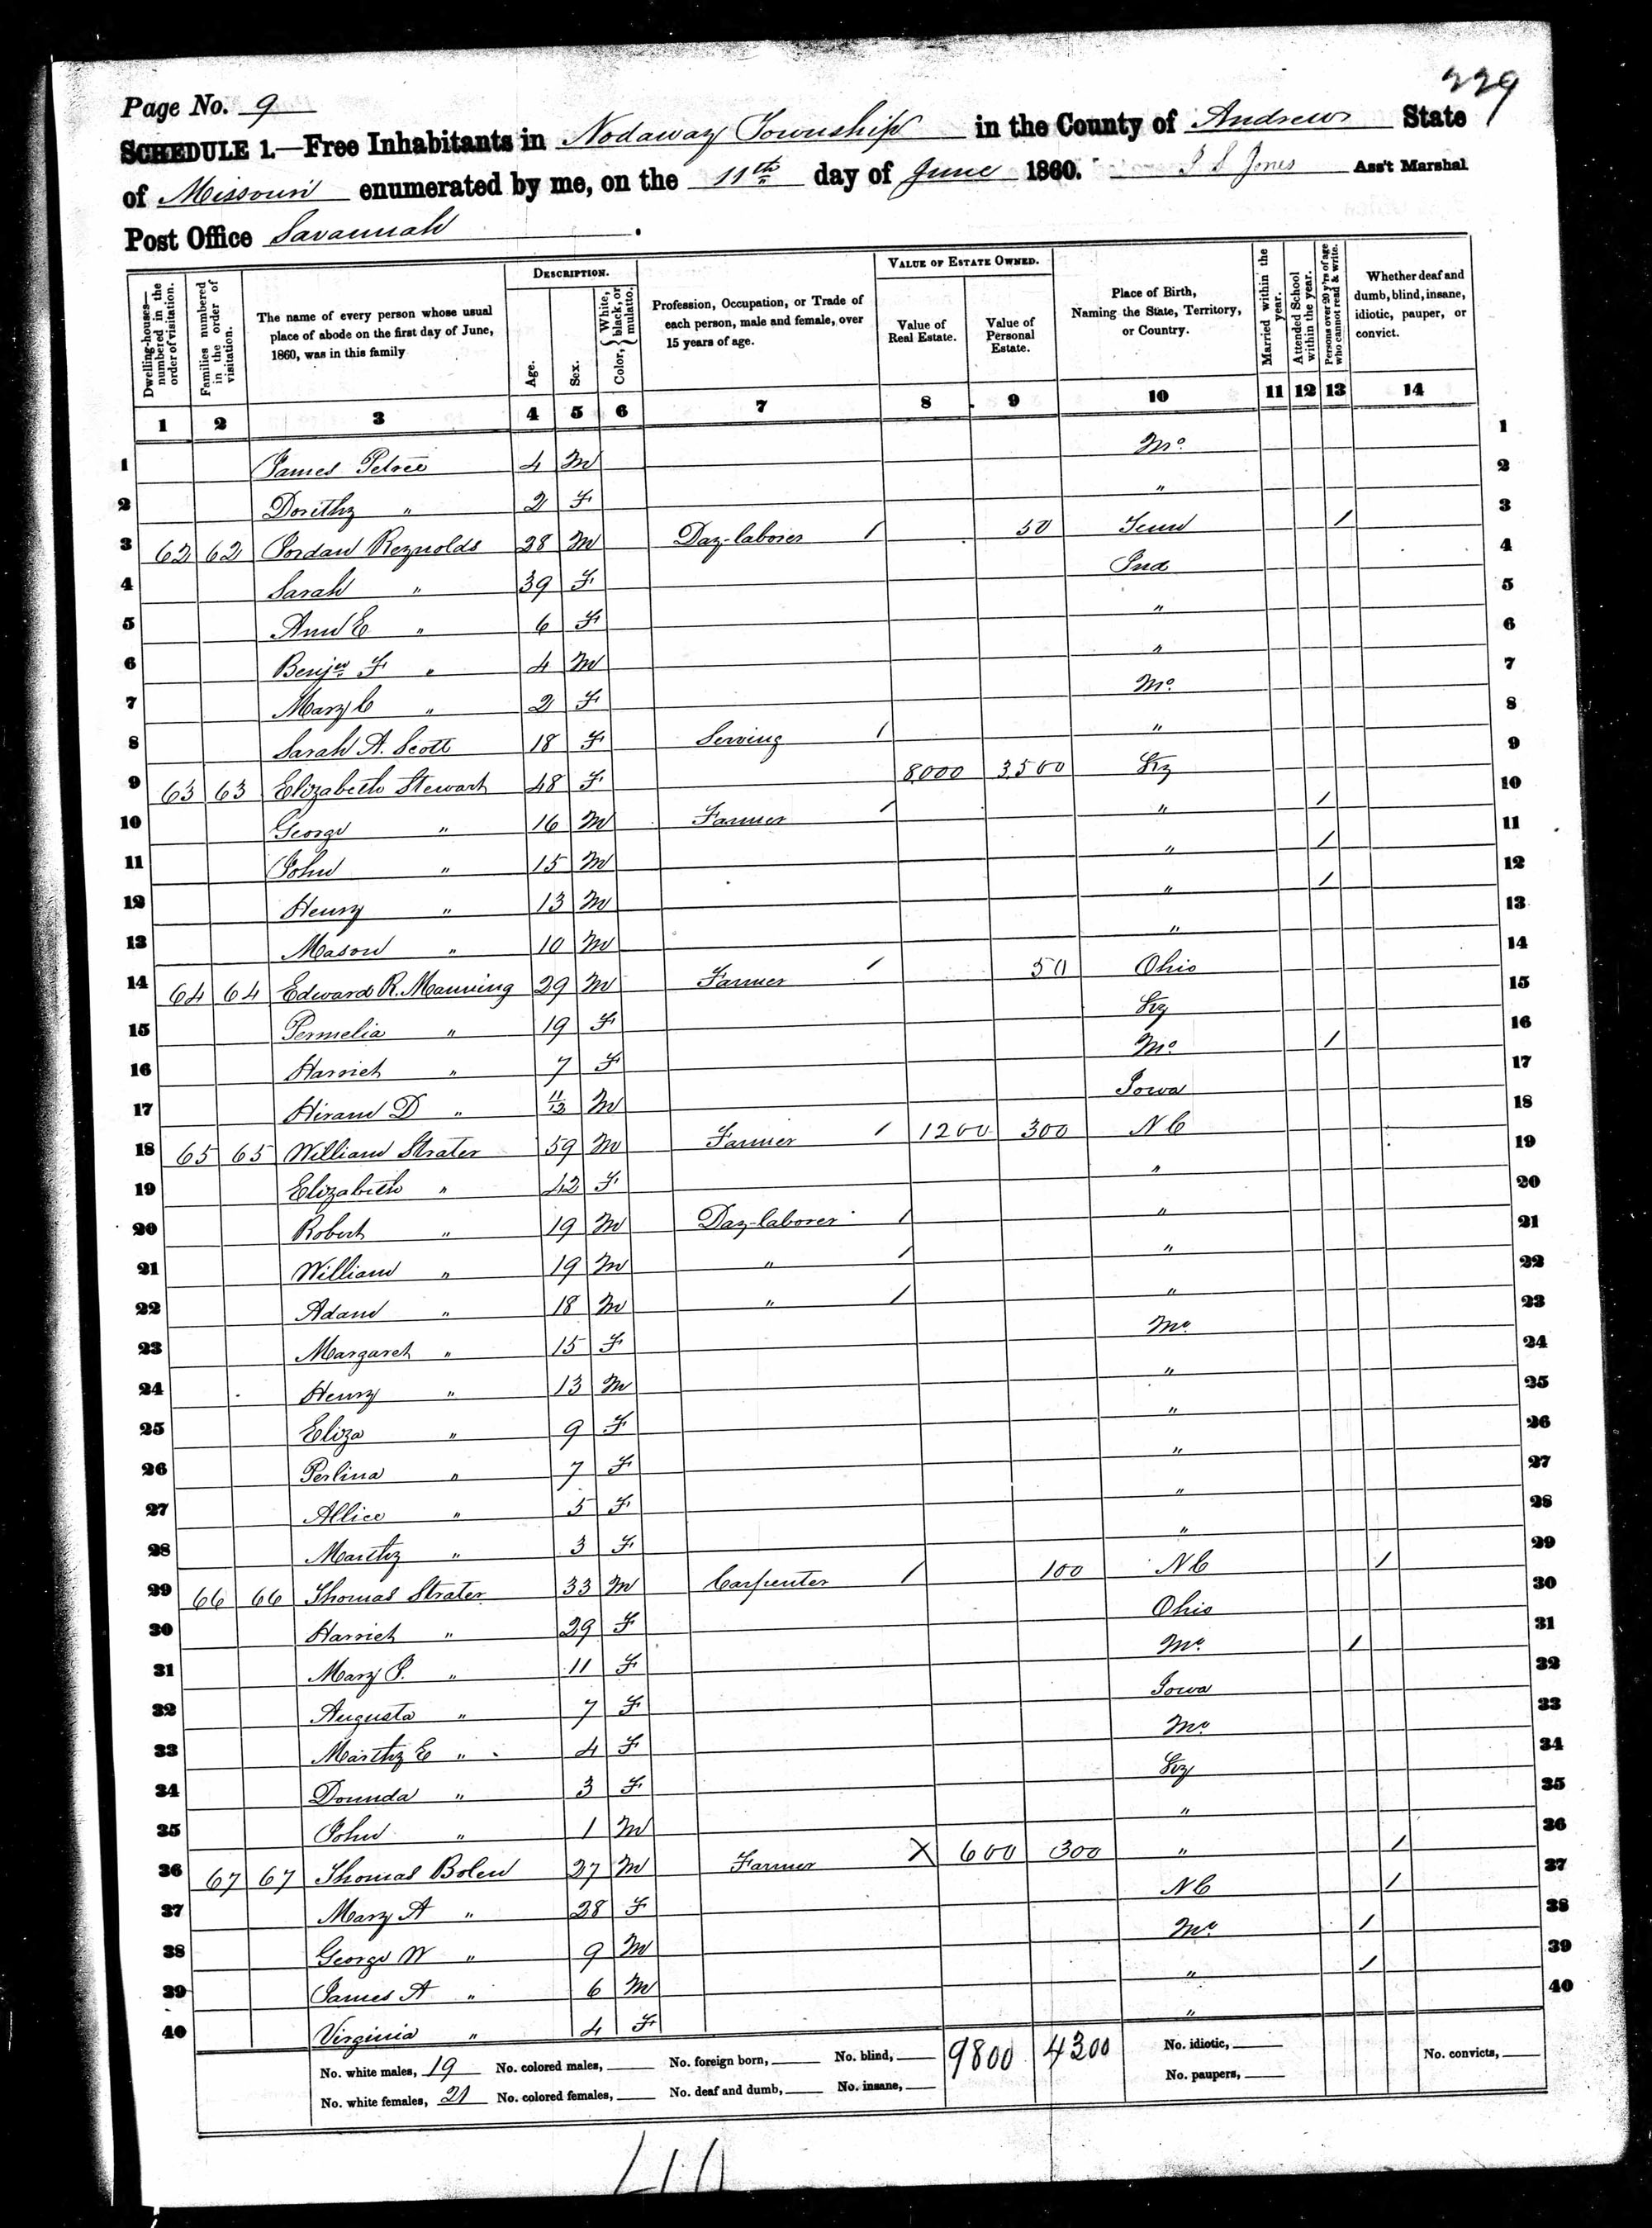 229
Page No. 9
SCHEDULE 1.—Free Inhabitants in Nodaway Township in the County of Andrew State
of Missouri enumerated by me, on the 11th day of June 1860. J S Jones Ass't Marshal
Post Office Savannah.
Dwelling-houses—numbered in the order of visitation. Families numbered in the order of visitation. The name of every person whose usual place of abode on the first day of June, 1860, was in this family DESCRIPTION. Age. Sex. Color, { White, black, or mulatto. Profession, Occupation, or Trade of each person, male and female, over 15 years of age. VALUE OF ESTATE OWNED. Value of Real Estate. Value of Personal Estate. Place of Birth, Naming the State, Territory, or Country. Married within the year. Attended School within the year. Persons over 20 y'rs of age who cannot read & write. Whether deaf and dumb, blind, insane, idiotic, pauper, or convict.
1 2 3 4 5 6 7 8 9 10 11 12 13 14
1 James 4 M Mo. 1
2 Dorithy " 2 F " 2
3 62 62 Jordan Reynolds 28 M Day-laborer / 50 Tenn / 3
4 Sarah " 39 F Ind 4
5 Ann E " 6 F " 5
6 Benjn F " 4 M " 6
7 Mary C " 2 F Mo. 7
8 Sarah A. Scott 18 F Serving / " 8
9 63 63 Elizabeth Stewart 48 F 8000 3500 Ky 9
10 George " 16 M Farmer / " / 10
11 John " 15 M " / 11
12 Henry " 13 M " / 12
13 Mason " 10 M " 13
14 64 64 Edward R. Manning 29 M Farmer / 50 Ohio 14
15 Permelia " 19 F Ky 15
16 Harriet " 7 F Mo / 16
17 Hiram D " 11/12 M Iowa 17
18 65 65 William Strater 59 M Farmer / 1200 300 N C 18
19 Elizabeth " 42 F " 19
20 Robert " 19 M Day-laborer / " 20
21 William " 19 M " / " 21
22 Adam " 18 M " / " 22
23 Margaret " 15 F Mo. 23
24 Henry " 13 M " 24
25 Eliza " 9 F " 25
26 Perlina " 7 F " 26
27 Allice " 5 F " 27
28 Marthy " 3 F " 28
29 66 66 Thomas Strater 33 M Carpenter / 100 N C / 29
30 Harriet " 29 F Ohio 30
31 Mary P. " 11 F Mo / 31
32 Augusta " 7 F Iowa 32
33 Marthy E " 4 F Mo 33
34 Dounda " 3 F Ky 34
35 John " 1 M " 35
36 67 67 Thomas Bolen 27 M Farmer X 600 300 " / 36
37 Mary A " 28 F N C / 37
38 George W " 9 M Mo. / 38
39 James A " 6 M " / 39
40 Virginia " 4 F " 40
No. white males, 19 No. colored males, No. foreign born, No. blind, 9800 4300 No. idiotic, No. convicts,
No. white females, 21 No. colored females, No. deaf and dumb, No. insane, No. paupers,